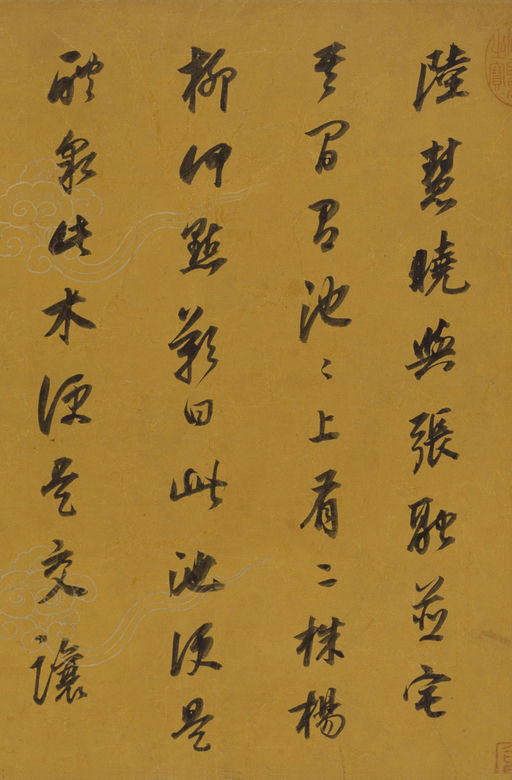 陸慧曉與張融並宅
其間有池〻上有二株楊
柳何點歎曰此池便是
醴泉此木便是交讓